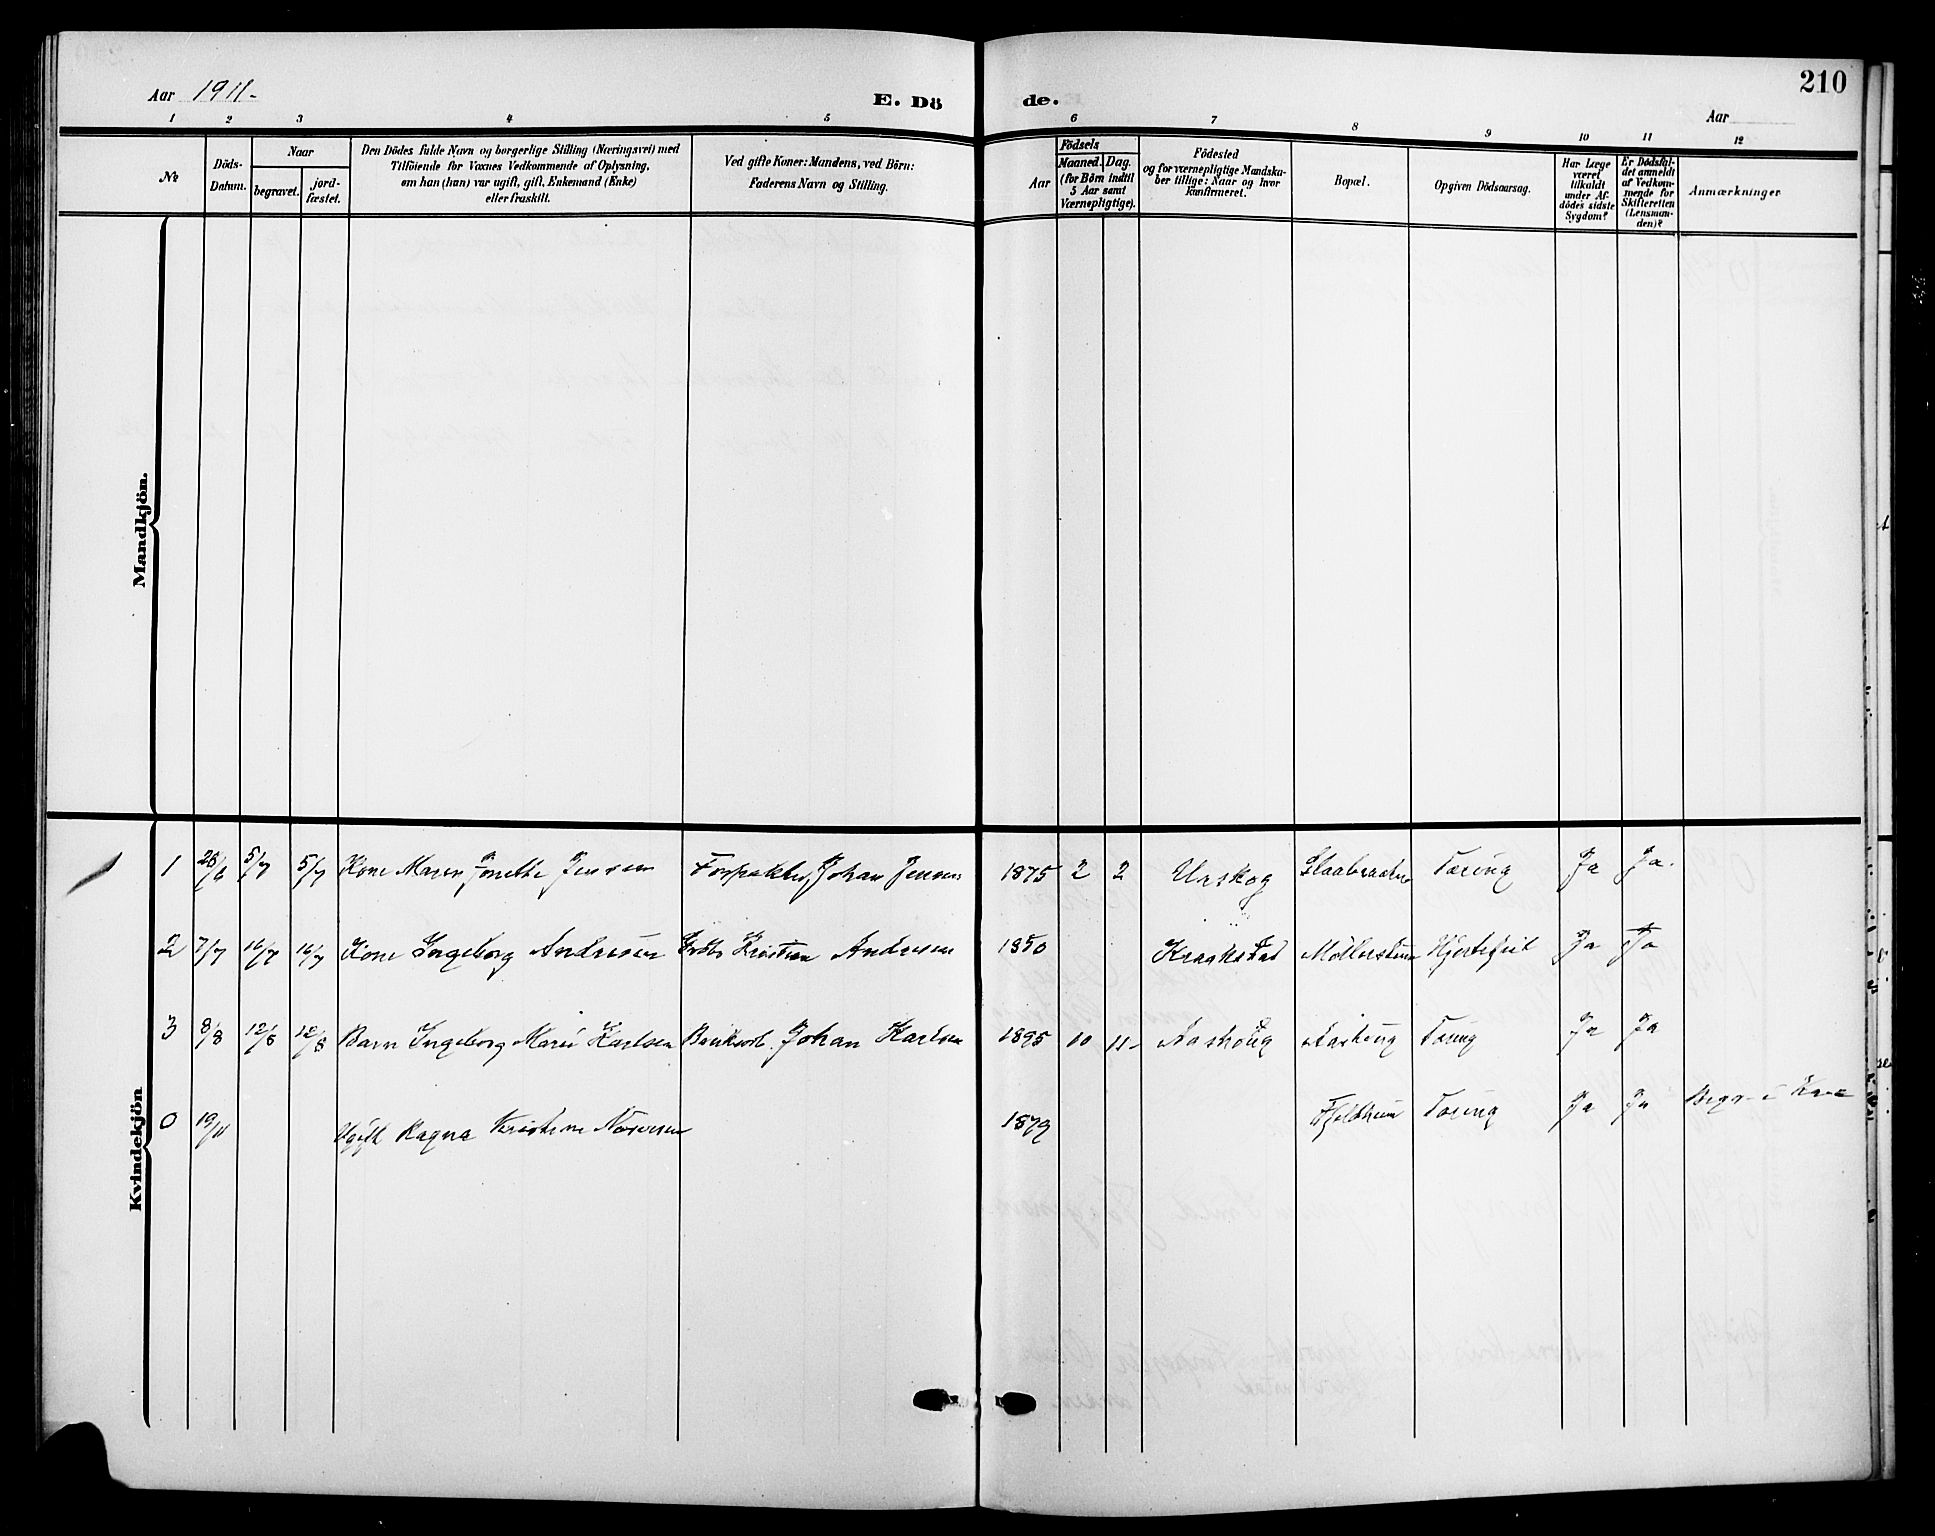 210
Aar 1911.
E. Dö de.
Aar
1 2 3 4 5 6 7 8 9 10 11 12
№
Döds-
Datum.
Naar
begravet.
jord-
fæstet.
Den Dödes fulde Navn og borgerlige Stilling (Næringsvei) med
Tilföiende for Voxnes Vedkommende af Oplysning,
om han (hun) var ugift, gift, Enkemand (Enke)
eller fraskilt.
Ved gifte Koner: Mandens, ved Börn:
Faderens Navn og Stilling.
Födsels
Aar
Maaned. Dag.
(for Börn indtil
5 Aar samt
Værnepligtige).
Födested
og for værnepligtige Mandska-
ber tillige: Naar og hvor
konfirmeret.
Bopæl.
Opgiven Dödsaarsag.
Har Læge
været
tilkaldt
under Af-
dödes sidste
Sygdom?
Er Dödsfal-
det anmeldt
af Vedkom-
mende for
Skifteretten
(Lensman-
den)?
Anmærkninger
Mandkjön.
Kvindekjön
1 28/6 5/7 5/7 Kone Maren Jonette Jensen Forpakter Johan Jensen 1875 2 2 Urskog Tæring Ja Ja.
2 7/7 16/7 16/7 Kone Ingeborg Andresen Kristian Andresen 1850 Kraakstad Hjertefeil Ja Ja
3 8/8 12/8 12/8 Barn Ingeborg Marie Karlsen Johan Karlsen 1895 10 11 Aashoug Aashoug Tæring Ja Ja
0 19/11 Ugift Ragna Kristine 1879 Tæring Ja Ja Begr. i